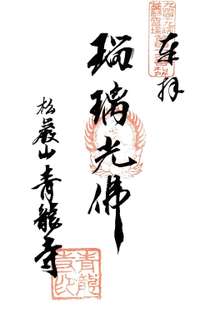 奉拝
瑠璃光佛
松巖山青龍寺
青龍寺印